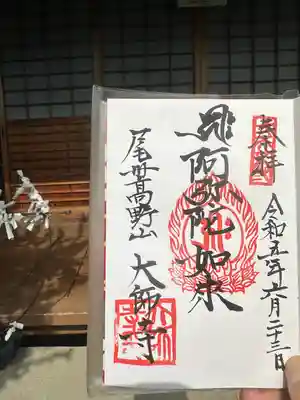 奉拝
令和五年六月二十三日
阿弥陀如来
高野山 大師寺